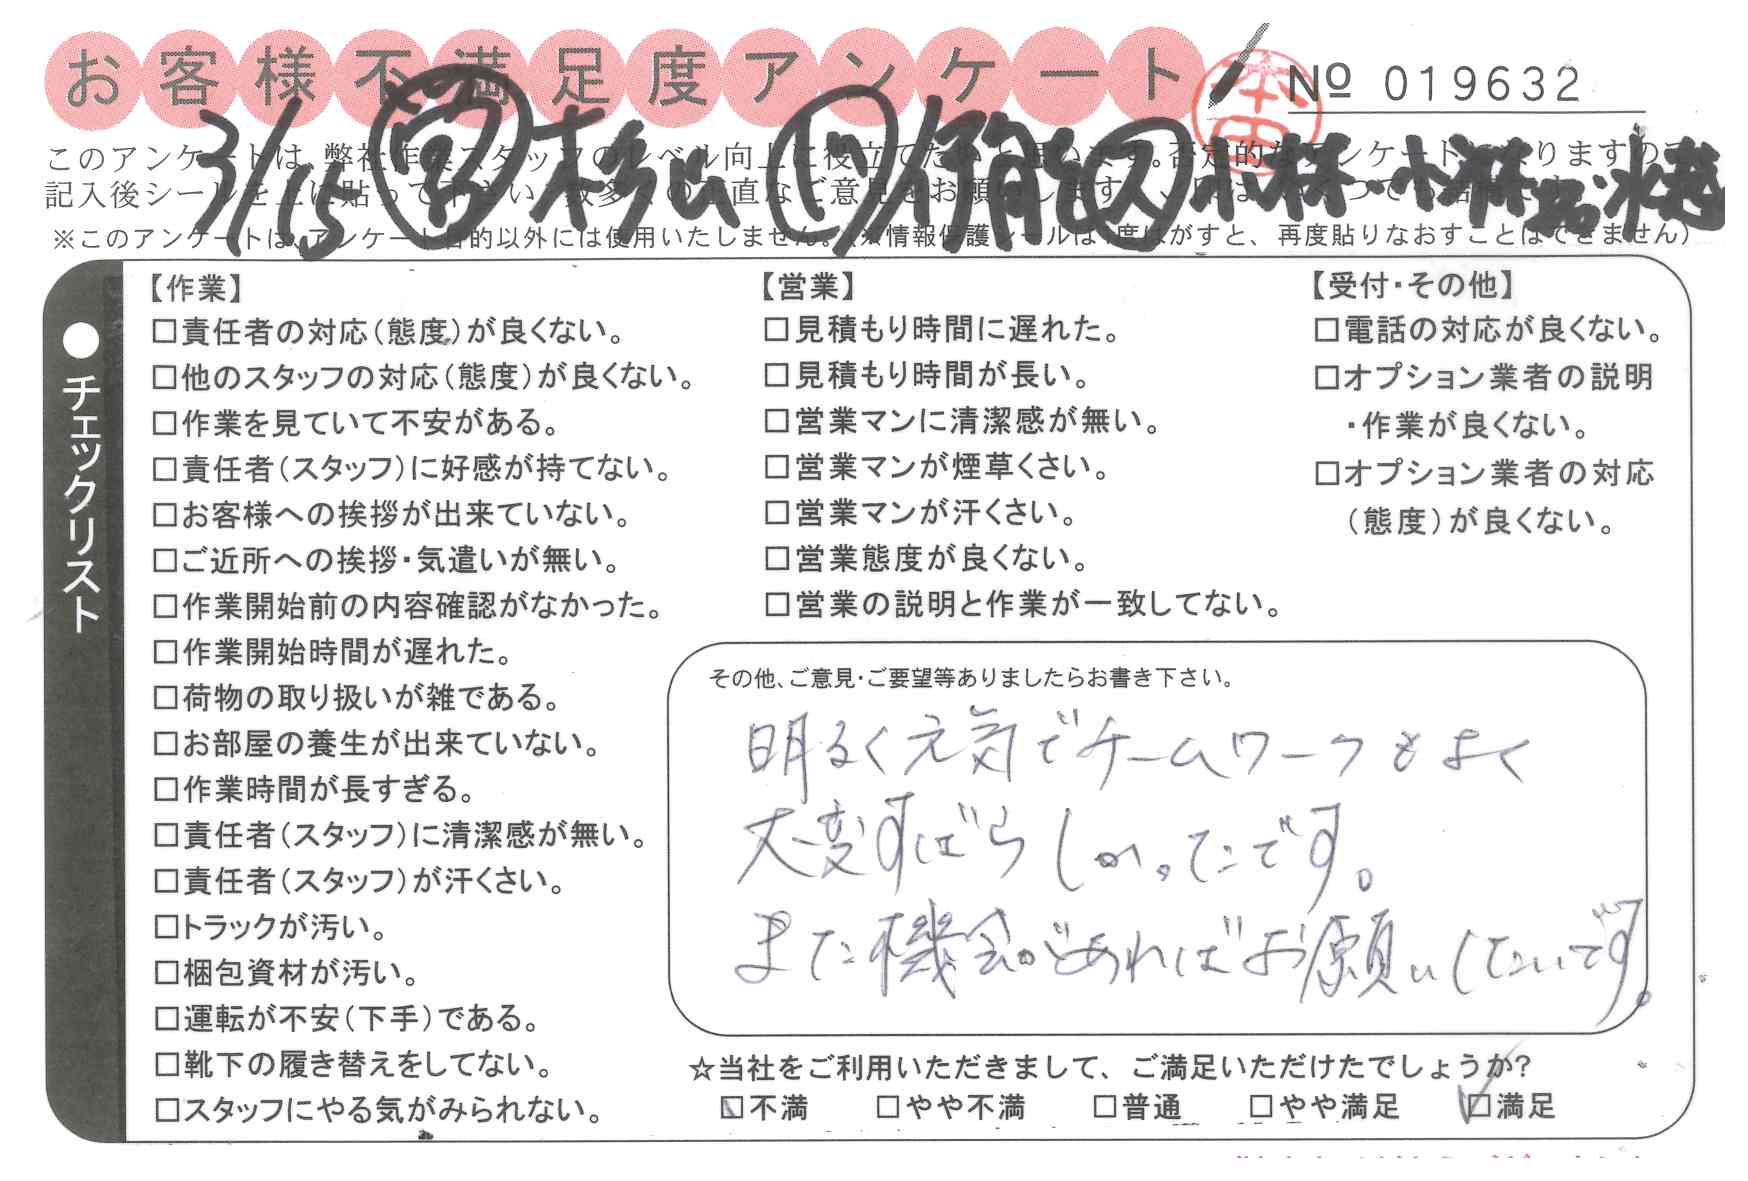 お客様不満足度アンケート
本田
№ 019632
3/15 営 杉山 リ 角 ス 小林・小林
このアンケートは、弊社作業スタッフのレベル向上に役立てたいと思います。否定的なアンケートになりますので
記入後シールを上に貼って下さい。数多くの正直なご意見をお願いします。
※このアンケートは、アンケート目的以外には使用いたしません。(※情報保護シールは1度はがすと、再度貼りなおすことはできません)
●チェックリスト
【作業】
□責任者の対応(態度)が良くない。
□他のスタッフの対応(態度)が良くない。
□作業を見ていて不安がある。
□責任者(スタッフ)に好感が持てない。
□お客様への挨拶が出来ていない。
□ご近所への挨拶・気遣いが無い。
□作業開始前の内容確認がなかった。
□作業開始時間が遅れた。
□荷物の取り扱いが雑である。
□お部屋の養生が出来ていない。
□作業時間が長すぎる。
□責任者(スタッフ)に清潔感が無い。
□責任者(スタッフ)が汗くさい。
□トラックが汚い。
□梱包資材が汚い。
□運転が不安(下手)である。
□靴下の履き替えをしてない。
□スタッフにやる気がみられない。
【営業】
□見積もり時間に遅れた。
□見積もり時間が長い。
□営業マンに清潔感が無い。
□営業マンが煙草くさい。
□営業マンが汗くさい。
□営業態度が良くない。
□営業の説明と作業が一致してない。
【受付・その他】
□電話の対応が良くない。
□オプション業者の説明
・作業が良くない。
□オプション業者の対応
(態度)が良くない。
その他、ご意見・ご要望等ありましたらお書き下さい。
明るく元気でチームワークもよく
大変すばらしかったです。
また機会があればお願いしたいです。
☆当社をご利用いただきまして、ご満足いただけたでしょうか?
□不満 □やや不満 □普通 □やや満足 ☑満足